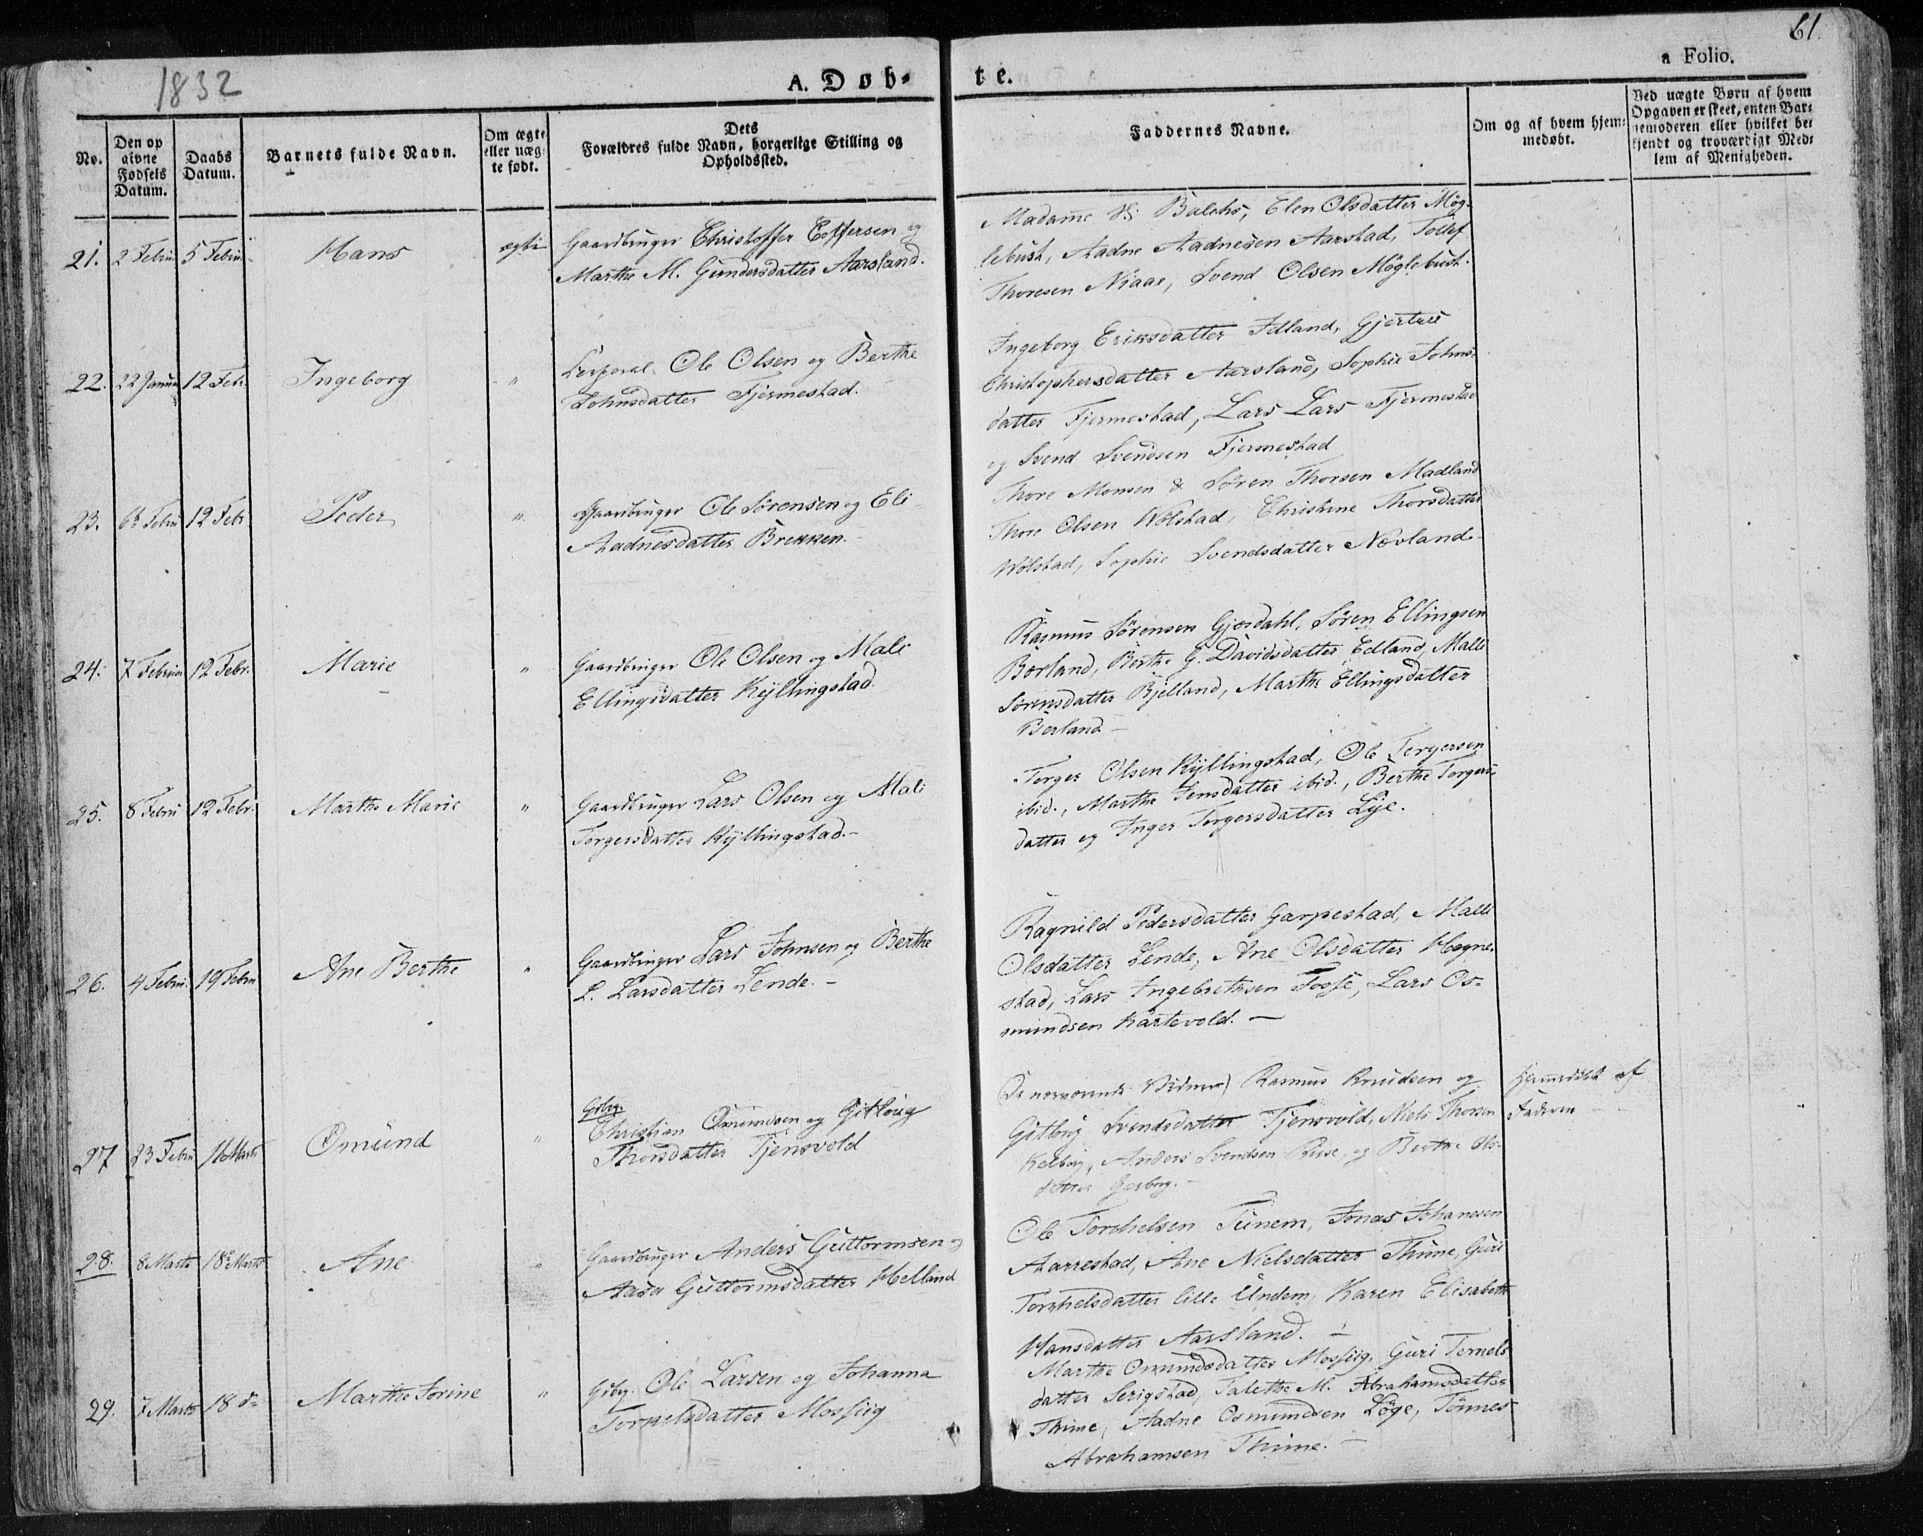 1832
A. Døb-
te.
61.
a Folio.
No.
Den op
givne
Fødsels
Datum.
Daabs
Datum.
Barnets fulde Navn.
Om ægte
eller uæg-
te født.
Dets
Forældres fulde Navn, borgerlige Stilling og
Opholdssted.
Faddernes Navne.
Om og af hvem hjem-
medøbt.
Ved uægte Børn af hvem
Opgaven er skeet, enten Bar-
nemoderen eller hvilket be-
kjendt og troværdigt Med-
lem af Menigheden.
21. 2 Febru 5 Febru Hans ægte
Gaardbruger Christoffer Eoffersen og
Marthe M. Gundersdatter Aarsland.
Madame Balchs, Elen Olsdatter Møg-
lebust, Aadne Aadnesen Aarstad, Tollef
Thoresen Niaae, Svend Olsen Møglebust.
22. 22 Januar 12 Febr. Ingeborg "
Corporal Ole Olsen og Berthe
Johnsdatter Fjermestad.
Ingeborg Eriksdatter Idland, Gjertrue
Christophersdatter Aarsland, Sophie Johns-
datter Fjermestad, Lars Lars Fjermestad
og Svend Svendsen Fjermestad
23. 6 Febru 12 Febr Peder "
Gaardbruger Ole Sørensen og Eli
Aadnesdatter Brekken.
Thore Monsen & Sören Thorsen Madland
Thore Olsen Wølstad, Christine Thorsdatter
Wølstad, Sophie Svendsdatter Nævland
24. 7 Februar 12 Febr. Marie "
Gaardbruger Ole Olsen og Mali
Ellingsdatter Kyllingstad.
Rasmus Sørensen Gjesdahl, Søren Ellingsen
Borland, Berthe G. Davidsdatter Edland, Malli
Sørensdatter Bjelland, Marthe Ellingsdatter
Børland
25. 8 Febru 12 Febr. Marthe Marie "
Gaardbruger Lars Olsen og Mali
Torgersdatter Kyllingstad.-
Torger Olsen Kyllingstad, Ole Torgersen
ibid., Marthe Jensdatter ibid., Berthe Torgers-
datter og Inger Torgersdatter Lye.
26. 4 Febru. 19 Febru Ane Berthe "
Gaardbruger Lars Johnsen og Berthe
L. Larsdatter Lende.-
Ragnild Pedersdatter Garpestad, Malli
Olsdatter Lende, Ane Olsdatter Hogne-
stad, Lars Ingebretsen Fosse, Lars Os-
mundsen Kartevold.-
27 23 Febru 16 Marts Omund "
Grbrg.
Christian Omundsen og Gitlaug
Thorsdatter Tjensvold
De nærværende Vidner Rasmus Knudsen og
Gitlaug Svendsdatter Tjensvold, Niels Thorsen
Anders Svendsen Ruse, og Berthe Ols-
datter
Hjemmedöbt af
Faderen
28. 8 Marts 18 Marts Ane "
Gaardbruger Anders Guttormsen og
Aasa Guttormsdatter Helland
Ole Torkelsen Tunem, Jonas Johanesen
Aarrestad, Ane Nielsdatter Thime, Guri
Torkelsdatter lille Undem, Karen Elisabeth
Hansdatter Aarsland.-
29. 7 Marts 18 do Marthe Sorine "
Grbrg. Ole Larsen og Johanna
Torkelsdatter Mossiig
Marthe Omundsdatter Mossiig, Guri Tornels
datter Serigstad, Talette M. Abrahamsdatter
Thime, Aadne Osmundsen Løge, Tønnes
Abrahamsen Thime.-